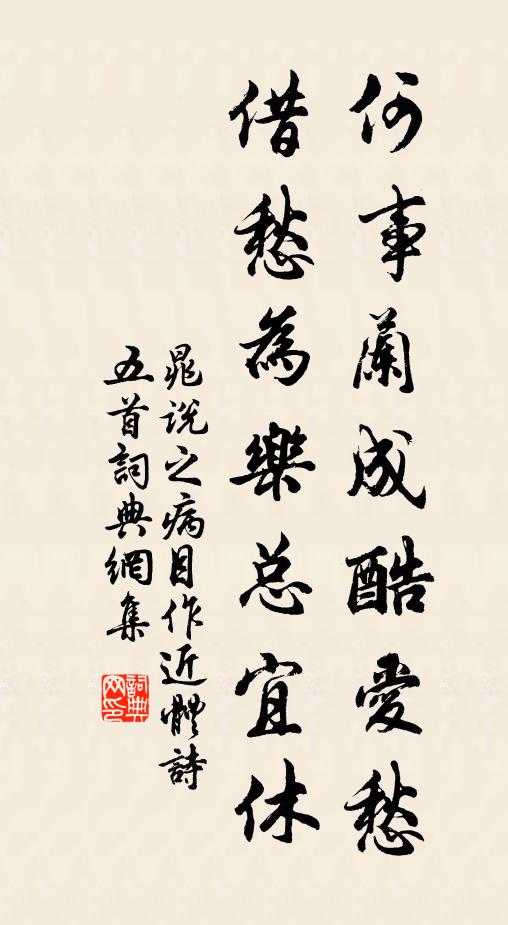 何事蘭成酷愛愁
借愁為樂总宜休
晁说之病目作近體詩
五首詞典網集
詞典网印